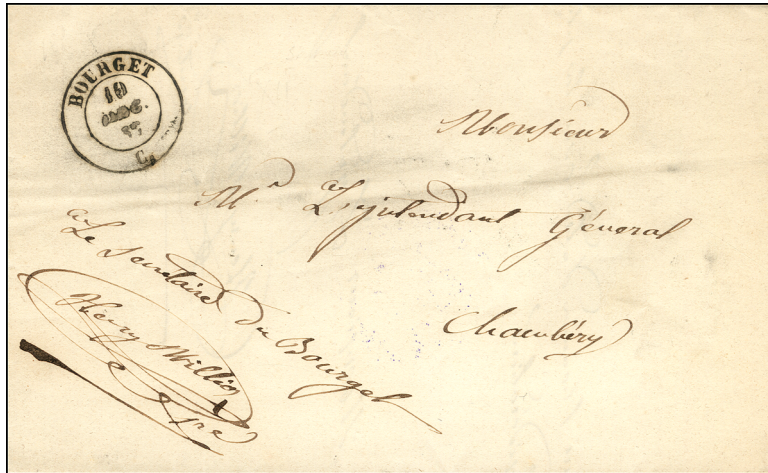 BOURGET
19
Monsieur
Mr L'Intendant Général
Chambéry
Le Secrétaire du Bourget
Henry